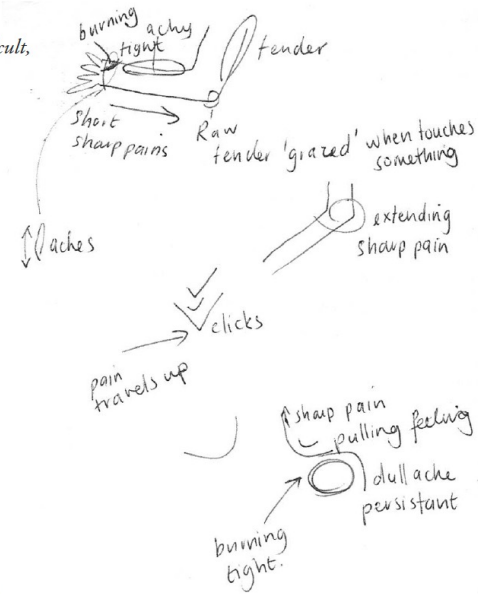 cult,
burning
achy
tight
tender
short
sharp pains
Raw
tender 'grazed' when touches
something
aches
extending
sharp pain
clicks
pain
travels up
sharp pain
pulling feeling
dull ache
persistant
burning
tight.